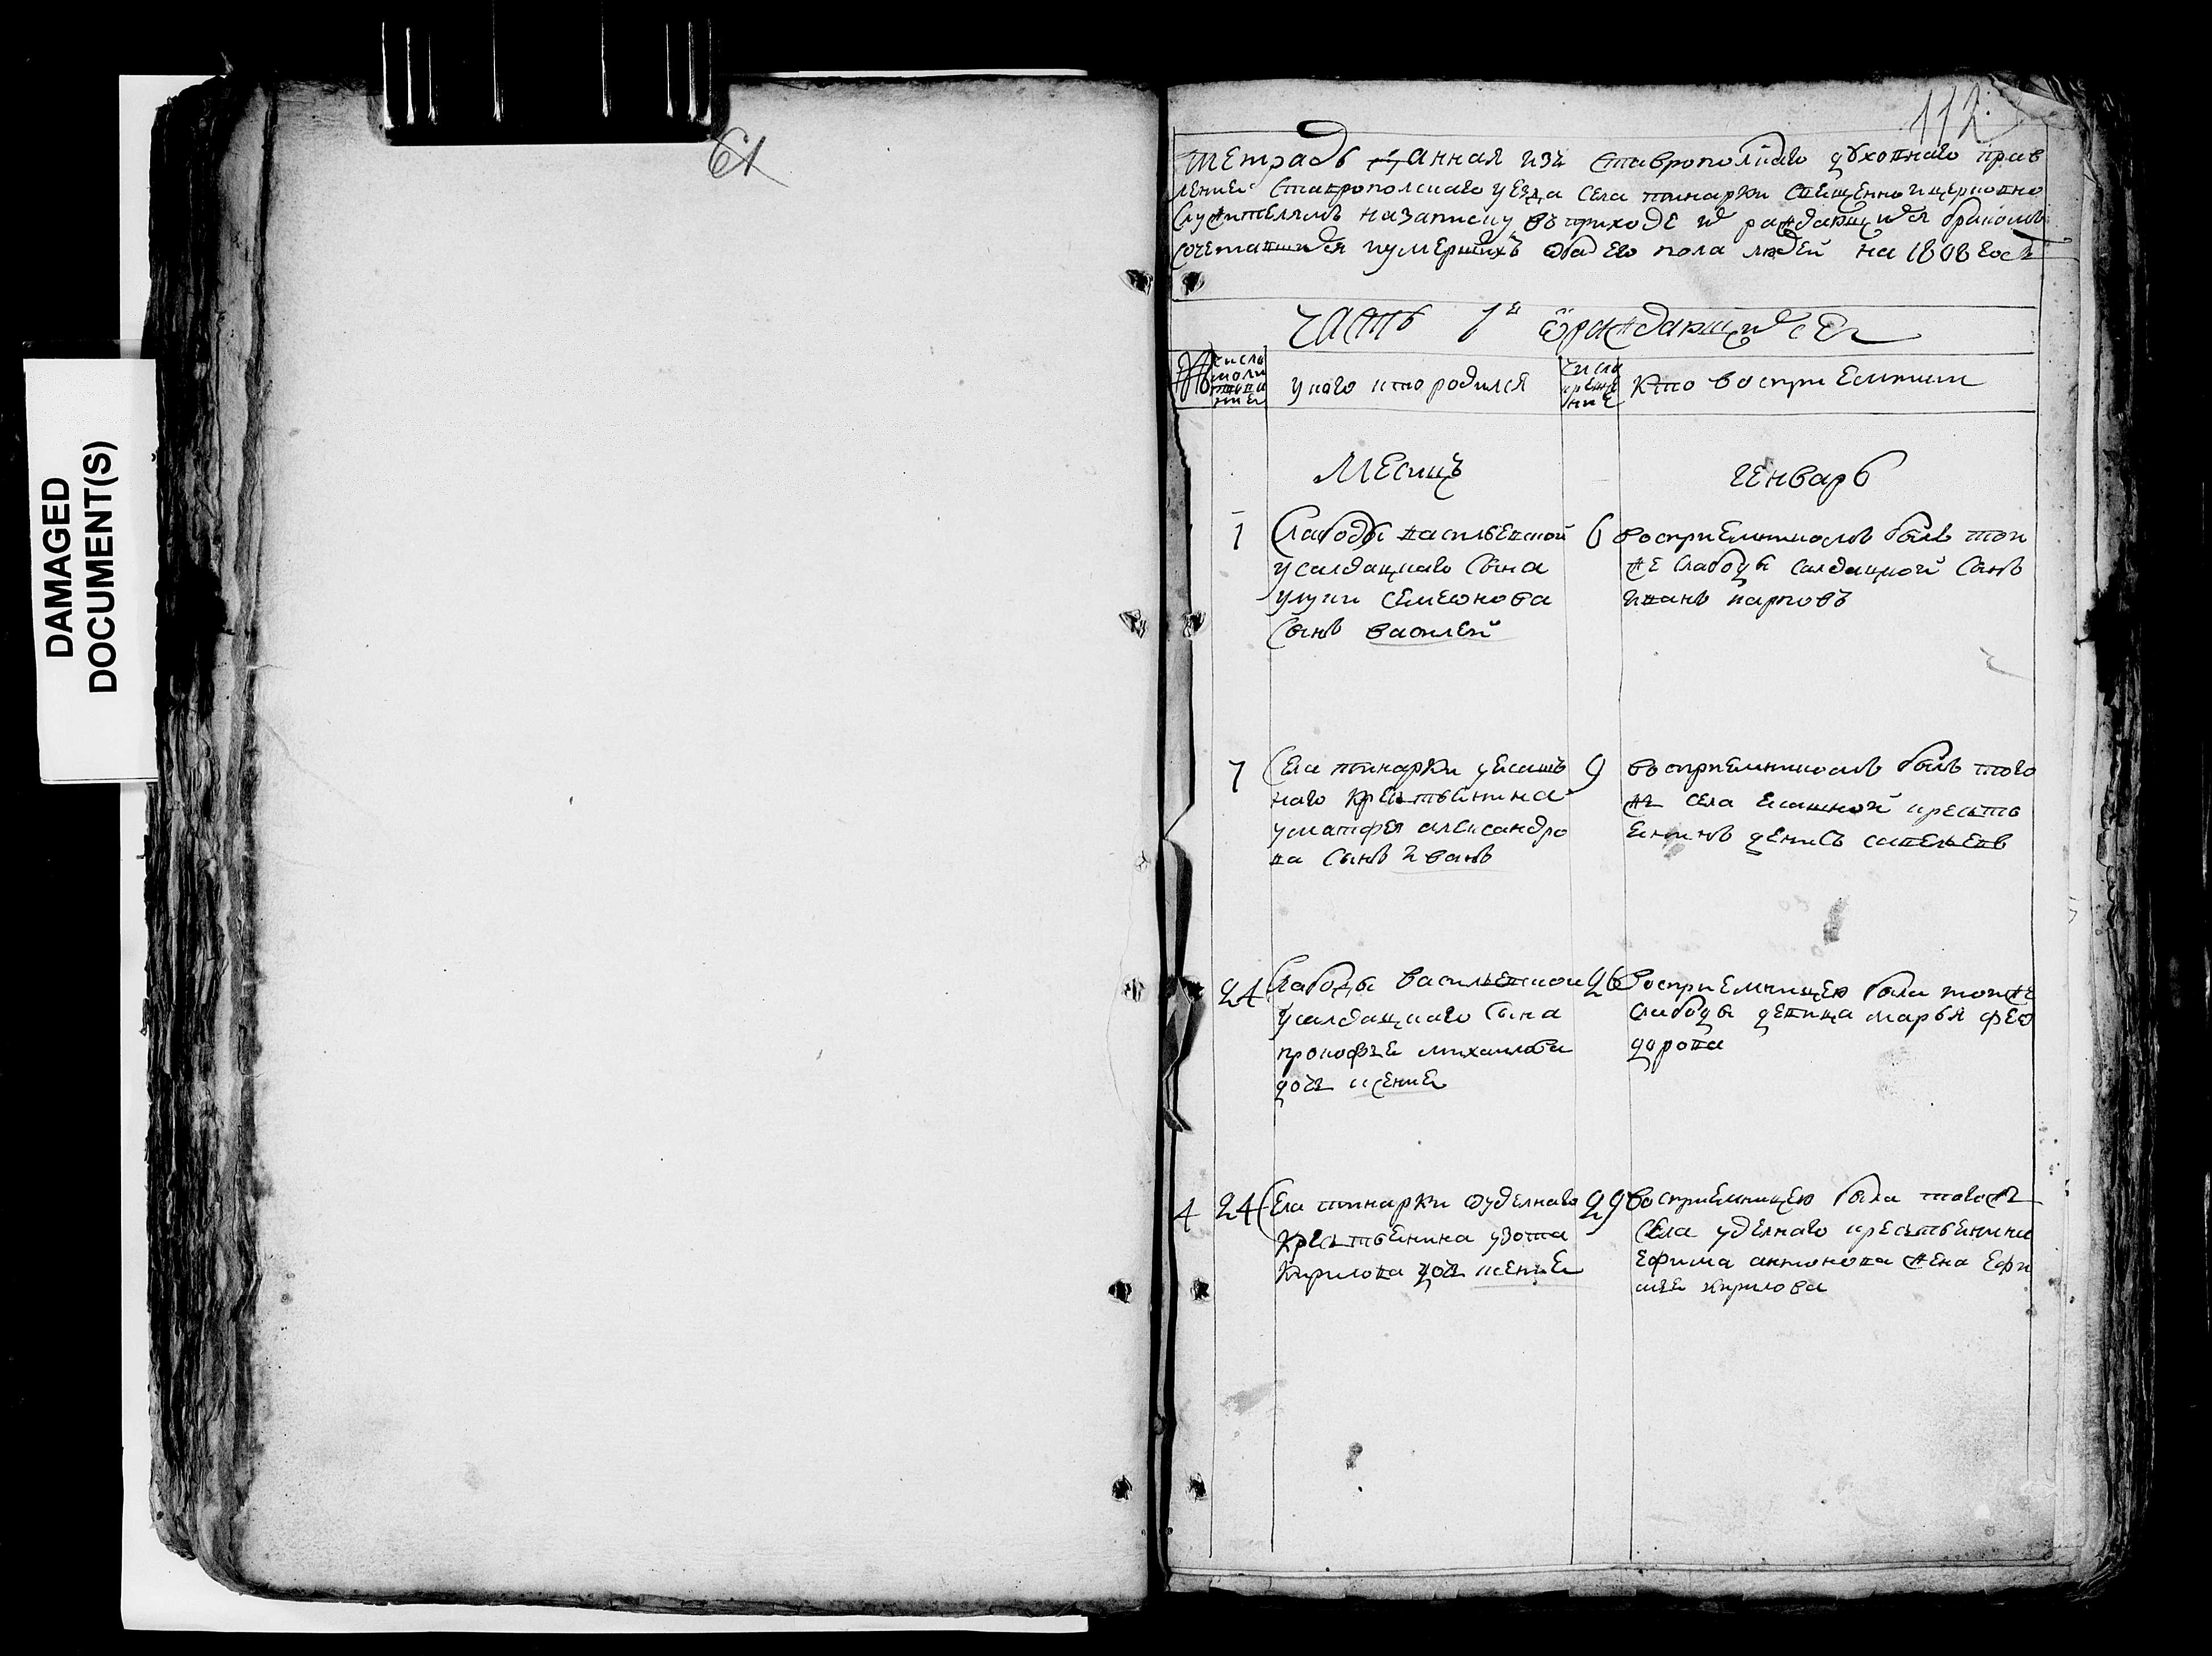 DAMAGED
DOCUMENT(S)
61
112
Тетрадь данная изъ Ставрополскаго духовнаго прав
ления Ставрополскаго уезда села пинарки священно и церковно
служителямъ на записку въ приходе ихъ раждающихся бракомъ
сочетавшихся и умершихъ обаего пола людей на 1808 годъ
Часть 1я о раждающихся
№
число
молит
у кого кто родился
число
креще
ние
кто восприемники
Месицъ
Генварь
1
Слабоды васильевской
у салдацкаго сына
луки семеонова
сынъ василей
6
восприемникомъ былъ той
же слабоды салдацкой сынъ
иванъ карповъ
7
Села пинарки у ясашъ
наго крестьянина
у матфея александро
ва сынъ иванъ
9
восприемникомъ былъ того
жъ села ясашной кресть
янинъ денисъ савельевъ
24
Слабоды васильевской
у салдацкаго сына
прокофье михайлова
дочь ксения
26
восприемницею была тойже
слабоды девица марья фео
дорова
4
24
Села пинарки у уделнаго
крестьянина изота
кирилова дочь ксения
29
восприемницею была тогожъ
села уделнаго крестьянина
ефима антонова жена ефи
мье кирилова